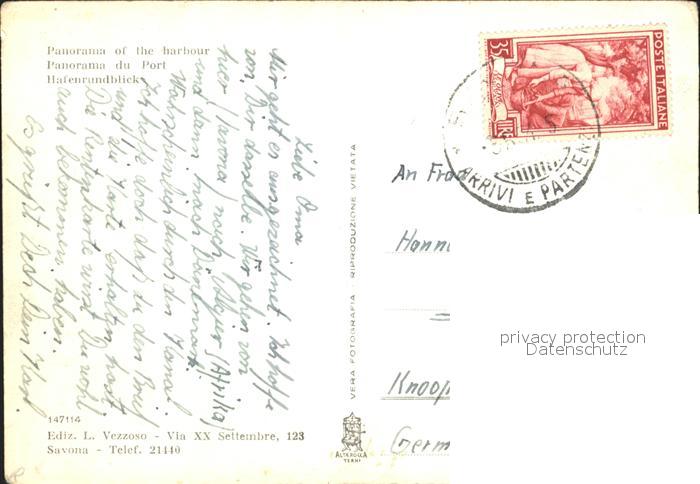 Panorama of the harbour
Panorama du Port
Hafenrundblick
Liebe Oma
Mir geht es ausgezeichnet. Ich hoffe
von Dir dasselbe. Wir gehen von
hier (Savona) nach (Afrika)
und dann nach Dänemark.
Warscheinlich durch den Kanal.
Ich hoffe doch daß du den Brief
und die Karte erhalten hast
Die Rentenkarte wirst Du wohl
auch bekommen haben.
Es grüßt Dich Dein Karl
147114
Ediz. L. Vezzoso - Via XX Settembre, 123
Savona - Telef. 21440
VERA FOTOGRAFIA - RIPRODUZIONE VIETATA
ALTEROCCA
TERNI
35
LIRE
POSTE ITALIANE
ARRIVI E PARTENZE
An Frau
Hann
Knoop
Germ
privacy protection
Datenschutz